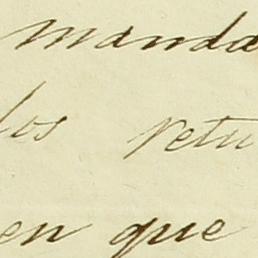 manda
los retu
en que